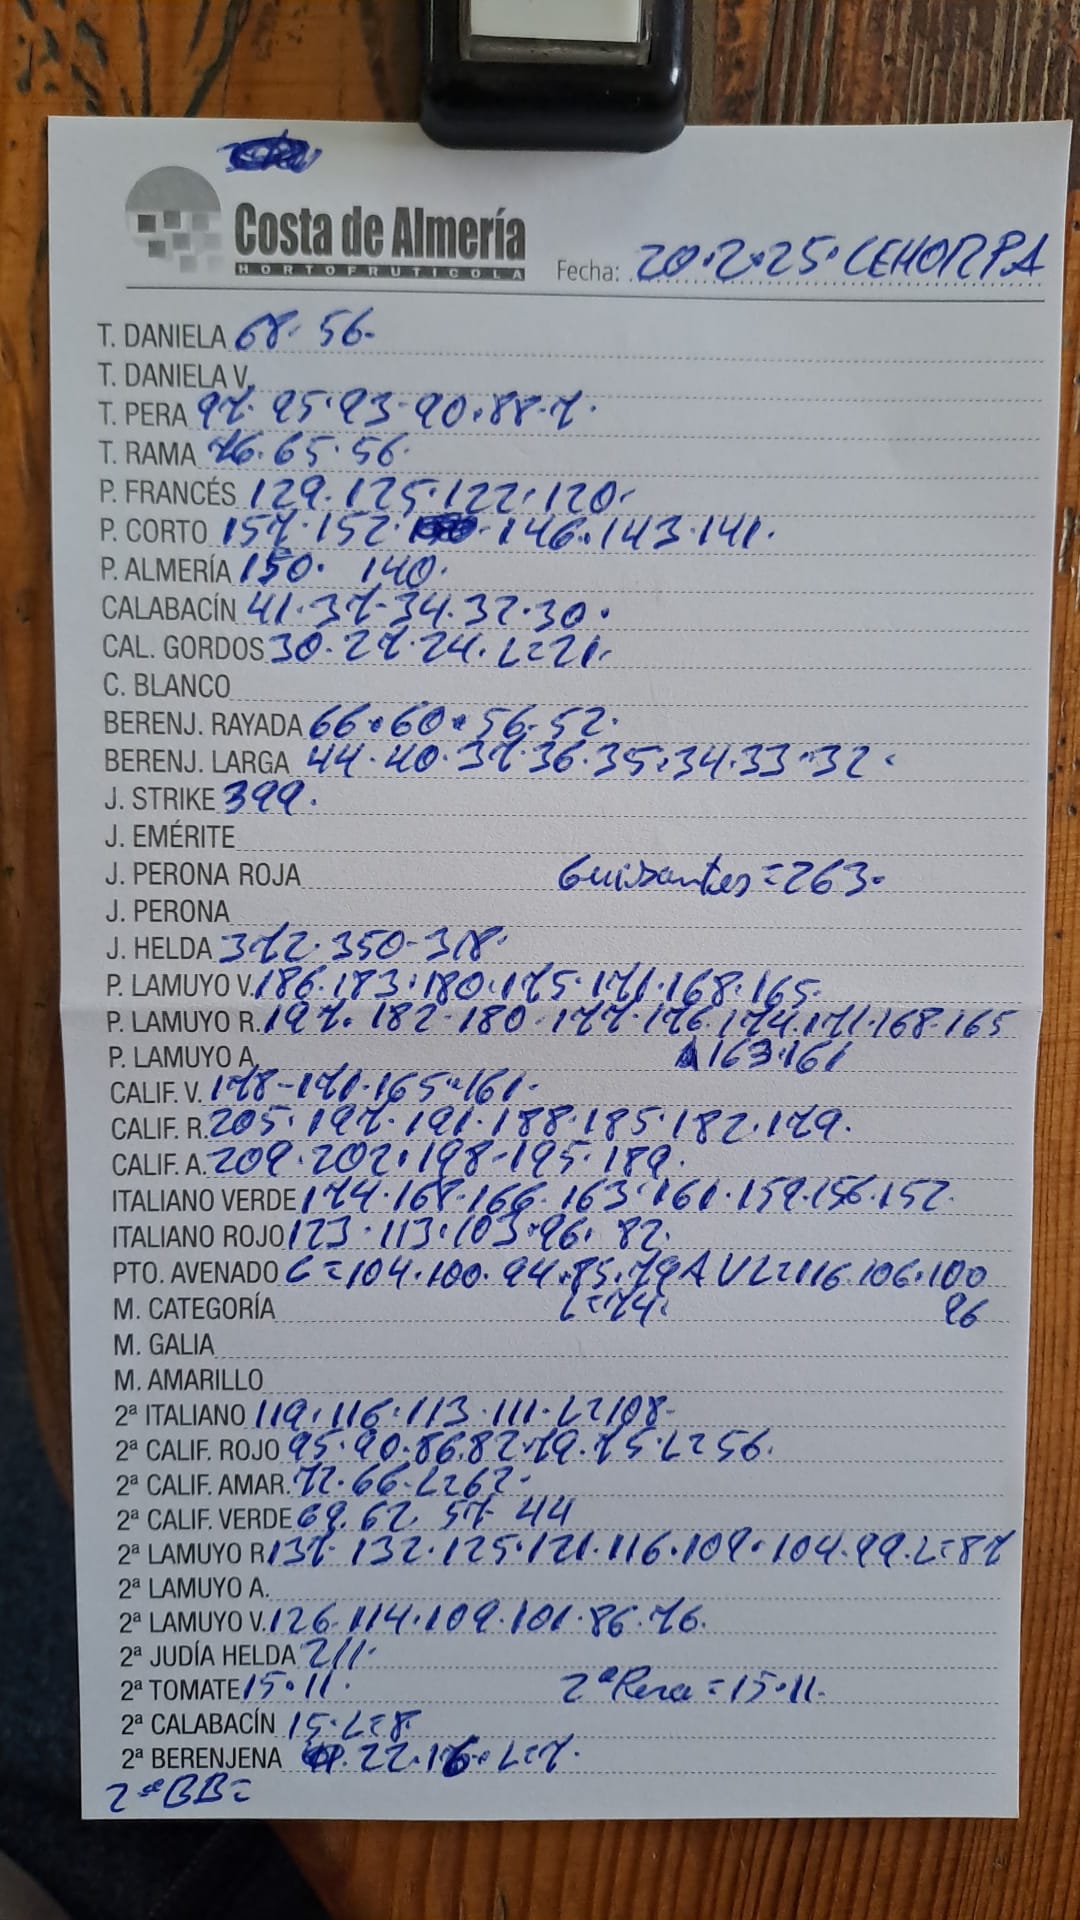 Costa de Almería
HORTOFRUTICOLA
Fecha: 20.2.25. CEHORPA
T. DANIELA 68. 56.
T. DANIELA V.
T. PERA 97. 95. 93. 90. 88. 7.
T. RAMA 76. 65. 56.
P. FRANCÉS 129. 125. 122. 120.
P. CORTO 157. 152. 146. 143. 141.
P. ALMERÍA 150. 140.
CALABACÍN 41. 37. 34. 32. 30.
CAL. GORDOS 30. 27. 24. L=21.
C. BLANCO
BERENJ. RAYADA 66. 60. 56. 52.
BERENJ. LARGA 44. 40. 37. 36. 35. 34. 33. 32.
J. STRIKE 399.
J. EMÉRITE
J. PERONA ROJA Guisantes=263.
J. PERONA
J. HELDA 372. 350. 318.
P. LAMUYO V. 186. 183. 180. 175. 171. 168. 165.
P. LAMUYO R. 197. 182. 180. 177. 176. 174. 171. 168. 165
P. LAMUYO A. 163. 161
CALIF. V. 178. 171. 165. 161.
CALIF. R. 205. 197. 191. 188. 185. 182. 179.
CALIF. A. 209. 202. 198. 195. 189.
ITALIANO VERDE 174. 168. 166. 163. 161. 159. 156. 152.
ITALIANO ROJO 123. 113. 103. 96. 82.
PTO. AVENADO C=104. 100. 94. 85. 79 A VL=116. 106. 100
M. CATEGORÍA L=74. 96
M. GALIA
M. AMARILLO
2ª ITALIANO 119. 116. 113. 111. L=108.
2ª CALIF. ROJO 95. 90. 86. 82. 79. 75. L=56.
2ª CALIF. AMAR. 72. 66. L=62.
2ª CALIF. VERDE 69. 62. 57. 44
2ª LAMUYO R 137. 132. 125. 121. 116. 109. 104. 99. L=87
2ª LAMUYO A.
2ª LAMUYO V. 126. 114. 109. 101. 86. 76.
2ª JUDÍA HELDA 211.
2ª TOMATE 15. 11. 2ª Pera=15.11.
2ª CALABACÍN 15. L=8.
2ª BERENJENA 22. 16. L=7.
2ª BB=